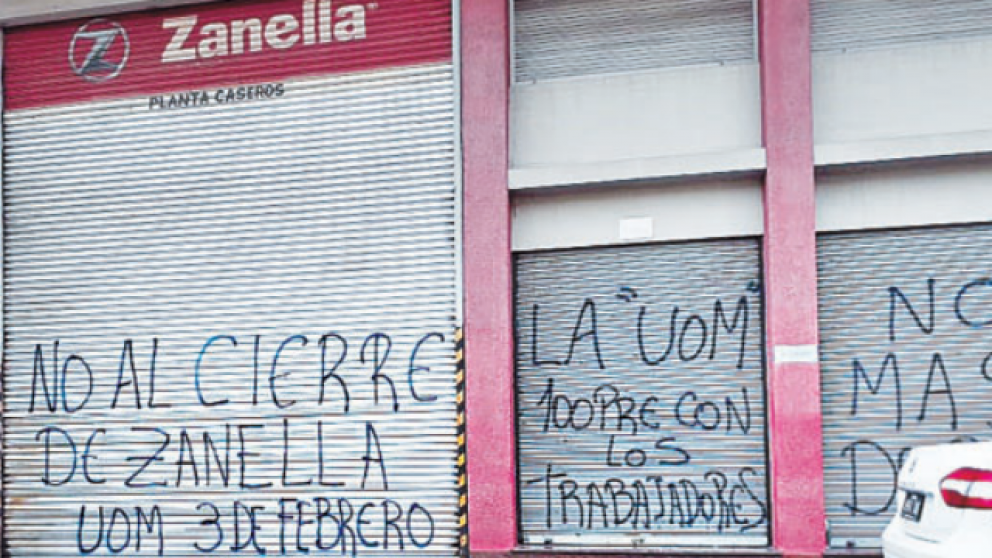 Zanella
PLANTA CASEROS
NO AL CIERRE
DE ZANELLA
UOM 3 DE FEBRERO
LA "UOM"
100PRE CON
LOS
TRABAJADORES
NO
MAS